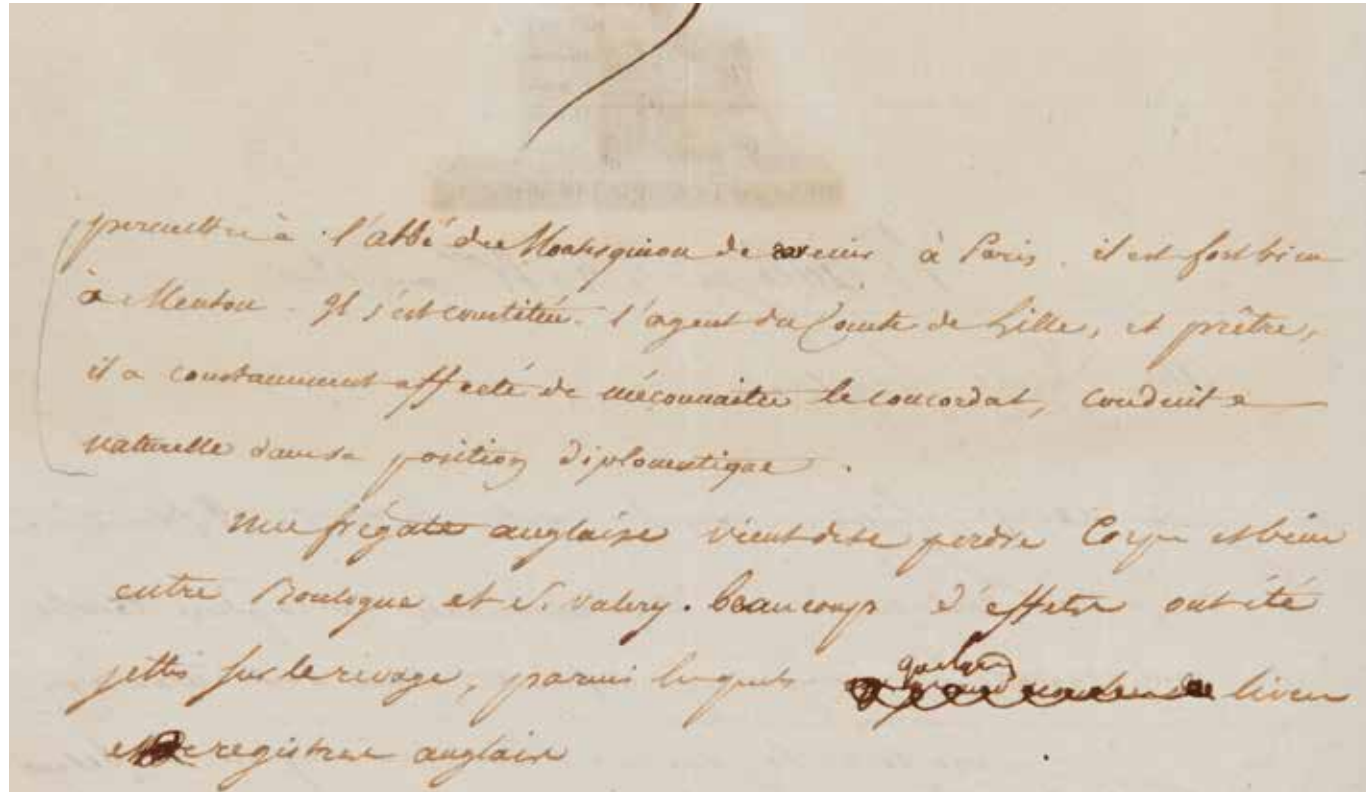 permettre à l'abbé de Montesquiou de venir à Paris. il est fort bien
à Menton. Il s'est constitué l'agent du Comte de Lille, et prêtre,
il a constamment affecté de méconnaitre le concordat, conduite
naturelle dans sa position diplomatique.
Une frégate anglaise vient de se perdre Corps et bien
entre Boulogne et St. Valery. beaucoup d'effets ont été
jettés sur le rivage, parmi lesquels quelques livres
et registres anglais